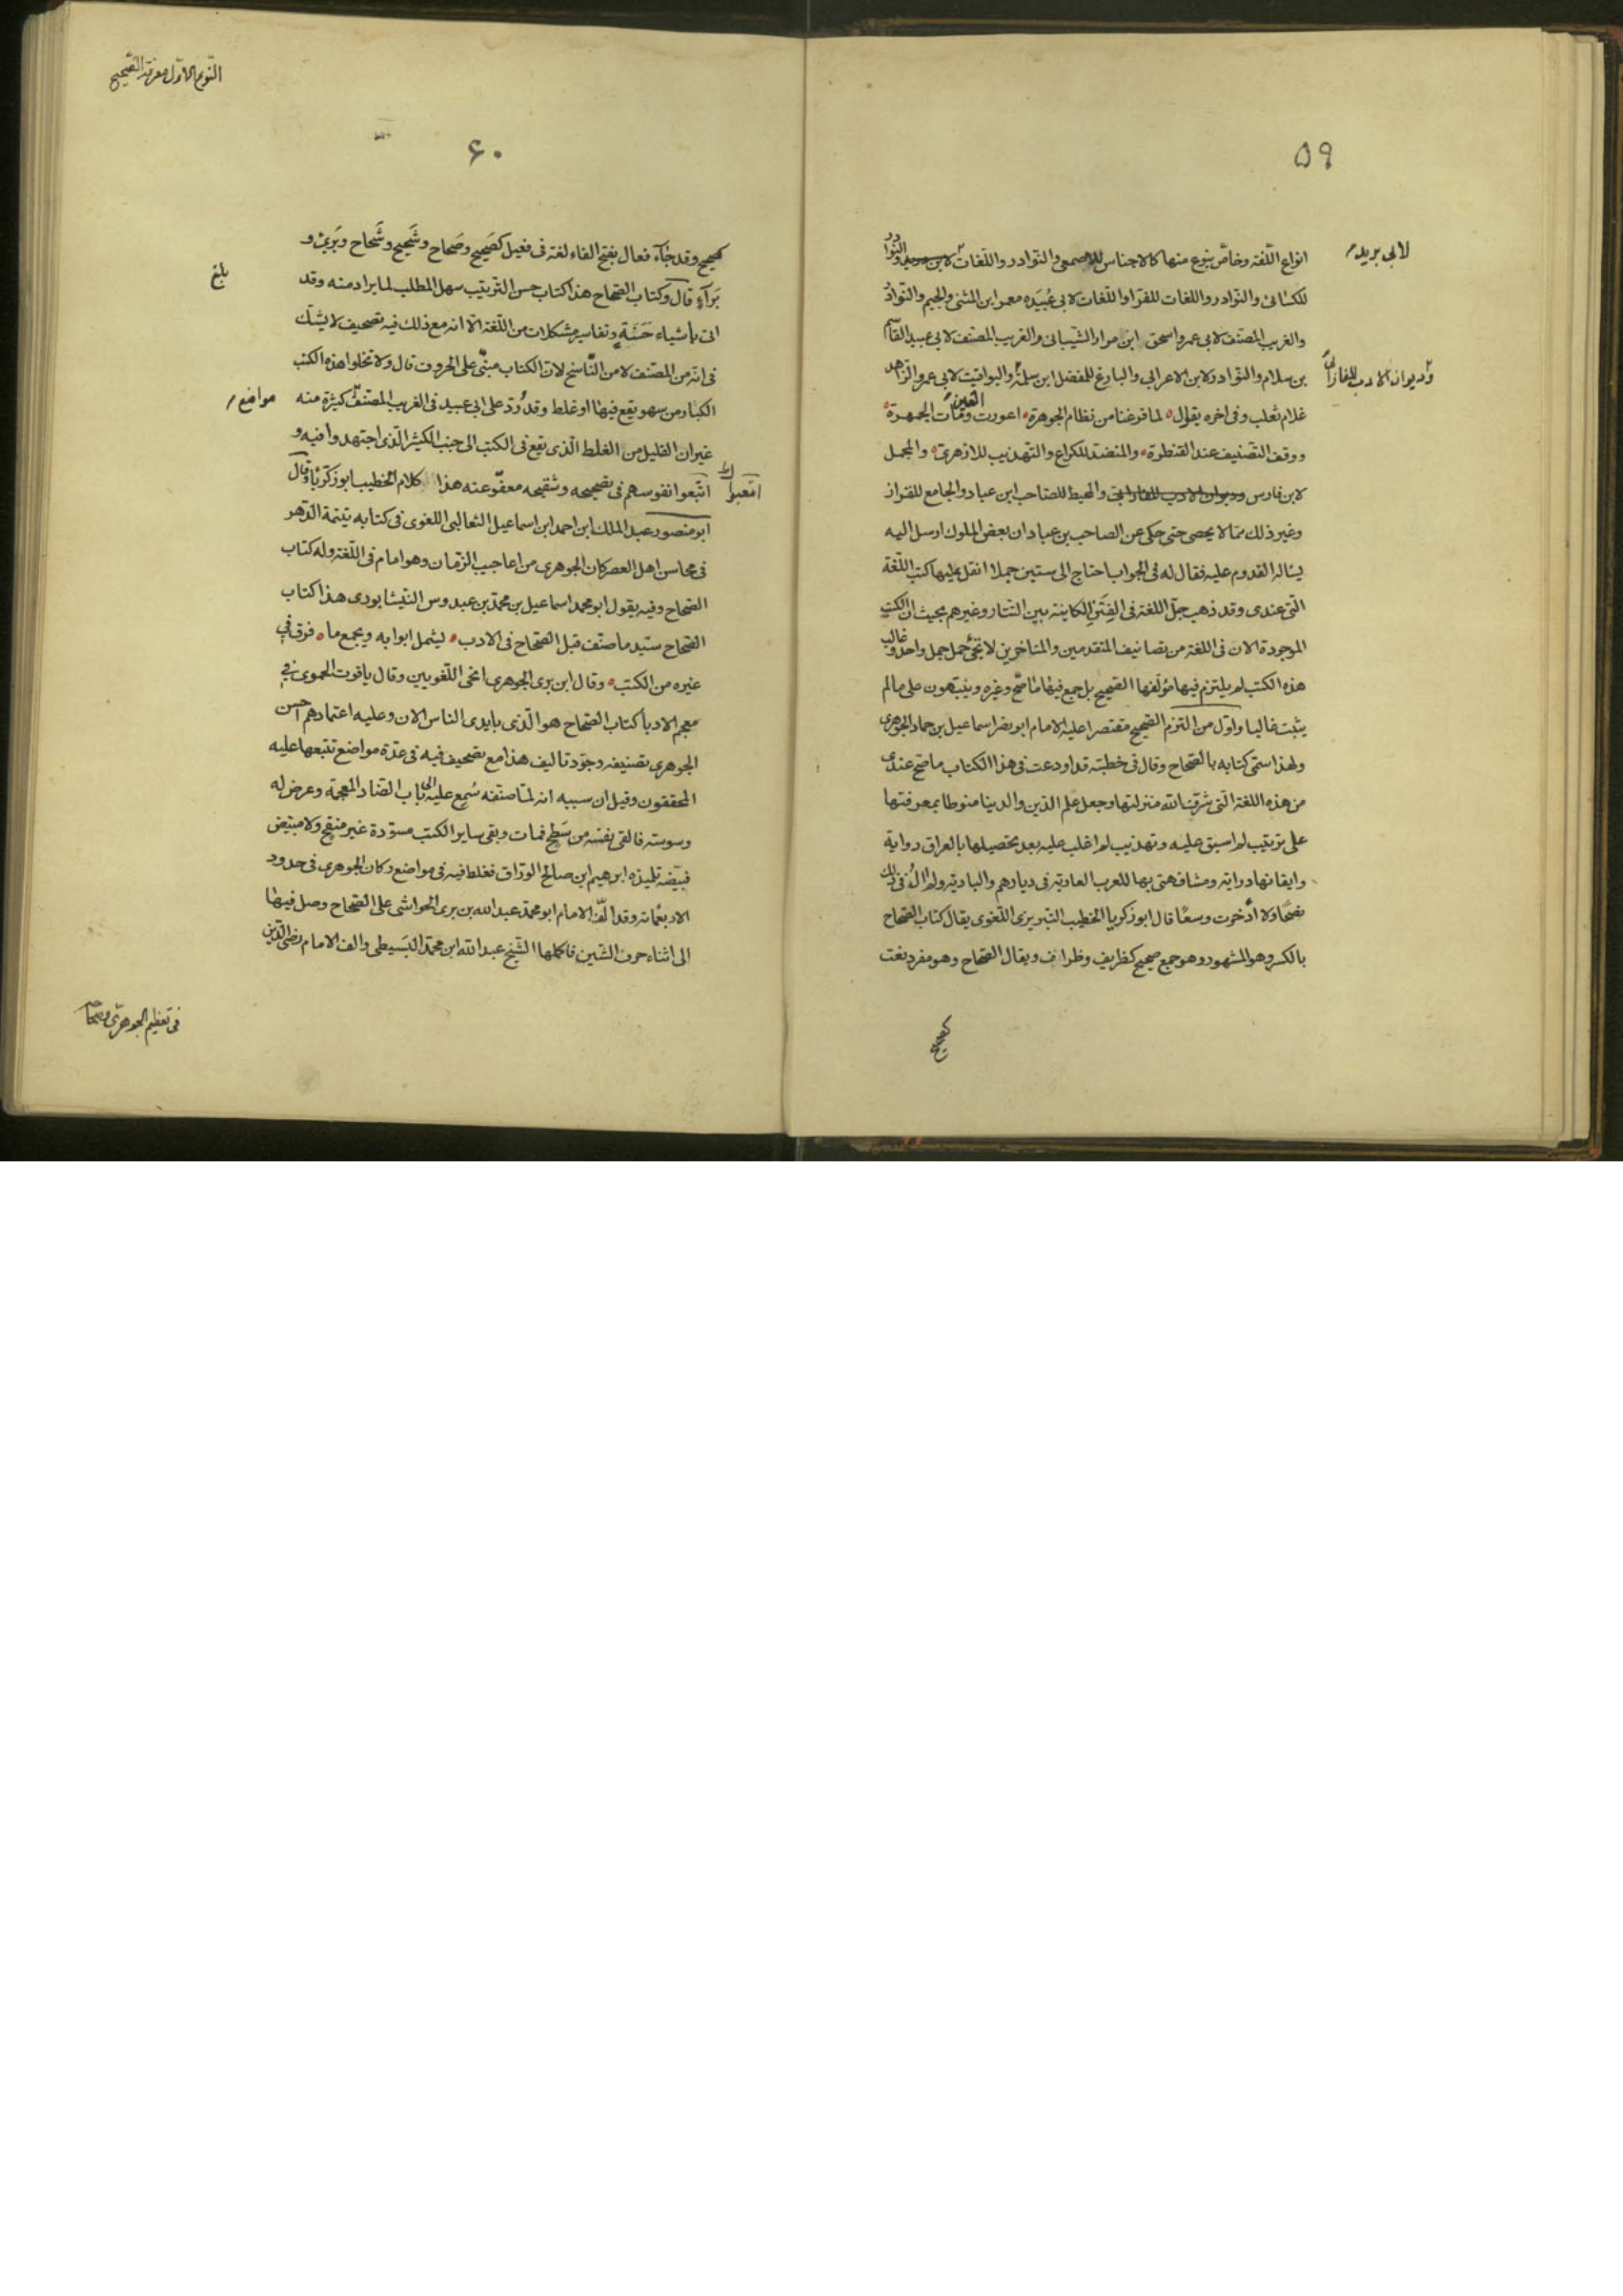 ٥٩
انواع اللّغة وخاصّ بنوع منها كالاجناس للاصمعى والنوادر واللّغات لابن دريد والنوادر
لابى بريد
للكسائى والنوادر واللغات للفرّاء واللّغات لابى عُبَيده معمر ابن المثنى والجيم والنّوادر
والغريب المصنف لابى عمرو اسحق ابن مرار الشّيبانى والغريب المصنف لابى عبيد القاسم
بن سلام والنّوادر لابن الاعرابي والبارع للمفضل ابن سلمة واليواقيت لابى عمرو الزاهد
وديوان الادب للفارابى
غلام ثعلب وفى اخره يقول لما فرغنا من نظام الجوهرة اعورت العين ومات الجمهرة
ووقف التّصنيف عند القنطرة والمنضد للكراع والتهذيب للازهرى والمجمل
لابن فارس وديوان الادب للفارابى والمحيط للصاحب ابن عباد والجامع للقزاز
وغير ذلك مما لا يحصى حتى حكى عن الصاحب بن عباد ان بعض الملوك ارسل اليه
يسئاله القدوم عليه فقال له فى الجواب احتاج الى ستين جملا انقل عليها كتب اللّغة
الّتى عندى وقد ذهب جلّ اللغة فى الفِتَنِ الكاينة بين التتار وغيرهم بحيث ان الكتب
الموجودة الان فى اللغة من تصانيف المتقدمين والمتاخرين لا تجئ حمل جمل واحد وغالب
هذه الكتب لم يلتزم فيها مؤلفها الصّحيح بل جمع فيها ما صحّ وغيره وينبّهون على ما لم
يثبت غالبا واوّل من التزم الصّحيح مقتصرا عليه الامام ابو نصر اسماعيل بن حماد الجوهرى
ولهذا سمّى كتابه بالصّحاح وقال فى خطبته قد اودعت فى هذا الكتاب ما صح عندى
من هذه اللغة الّتى شرّف الله منزلتها وجعل علم الدّين والدنيا منوطا بمعرفتها
على ترتيب لم اسبق عليه وتهذيب لم اغلب عليه بعد تحصيلها بالعراق رواية
وايقانها دراية ومشافهتى بها للعرب العاربة فى ديارهم والبادية ولم ال فى ذلك
نصحًا ولا ادّخرت وسعًا قال ابو زكريا الخطيب التبريزى اللّغوى يقال كتاب الصّحاح
بالكسر وهو المشهور وهو جمع صحيح كظريف وظراف ويقال الصّحاح وهو مفرد نعت
كصحيح
النّوع الاوّل معرفة الصّحيح
٦٠
كصحيح وقد جاء فعال بفتح الفاء لغة فى فعيل كصَحِيح وصَحاح وشَحِيح وشَحاح وبَرِئ و
بَرآءٍ قال وكتاب الصّحاح هذا كتاب حسن الترتيب سهل المطلب لما يراد منه وقد
بلغ
اتى بأشياء حَسَنَةٍ وتفاسير مشكلات من اللّغة الّا انه مع ذلك فيه تصحيف لا يشك
فى انّه من المصنف لا من النّاسخ لانّ الكتاب مبنىّ على الحروف قال ولا تخلوا هذه الكتب
الكبار من سهو يقع فيها او غلط وقد رُدّ على ابى عبيد فى الغريب المصنف كثيرة منه
مواضع
غير ان القليل من الغلط الّذى يقع فى الكتب الى جنب الكثير الّذى اجتهدوا فيه و
اتّبعوا نفوسهم فى تصحيحه وتنقيحه معفوّ عنه هذا كلام الخطيب ابو زكريّا وقال
اتعبوا
ابو منصور عبد الملك ابن احمد ابن اسماعيل الثعالبى اللغوى فى كتابه يتيمة الدّهر
فى محاسن اهل العصر كان الجوهرى من اعاجيب الزّمان وهو امام فى اللّغة وله كتاب
الصّحاح وفيه يقول ابو محمد اسماعيل بن محمّد بن عبدوس النّيشابورى هذا كتاب
الصّحاح سيّد ما صنّف قبل الصّحاح فى الادب ليشمل ابوابه ويجمع ما فرق فى
غيره من الكتب وقال ابن برى الجوهرى انحى اللّغويين وقال ياقوت الحموى فى
معجم الادبا كتاب الصّحاح هو الّذى بايدى الناس الان وعليه اعتمادهم احسن
الجوهرى تصنيفه وجوّد تاليف هذا مع تصحيف فيه فى عدّة مواضع تتبعها عليه
المحققون وقيل ان سببه انه لمّا صنّفه سُمِع عليه الى باب الضّاد المعجمة وعرض له
وسوسة فالقى بنفسه من سَطْحٍ فمات وبقى ساير الكتب مسوّدة غير منقّح ولا مبيّض
فبيّضه تلميذه ابرهيم ابن صالح الورّاق فغلط فيه فى مواضع وكان الجوهرى فى حدود
الاربعمائة وقد الّف الامام ابو محمّد عبد الله بن برى الحواشى على الصّحاح وصل فيها
الى اثناء حرف الشّين فاكملها الشّيخ عبد الله ابن محمّد البَسيطى والف الامام رضى الدّين
فى تعظيم الجوهرىّ وصحاحه